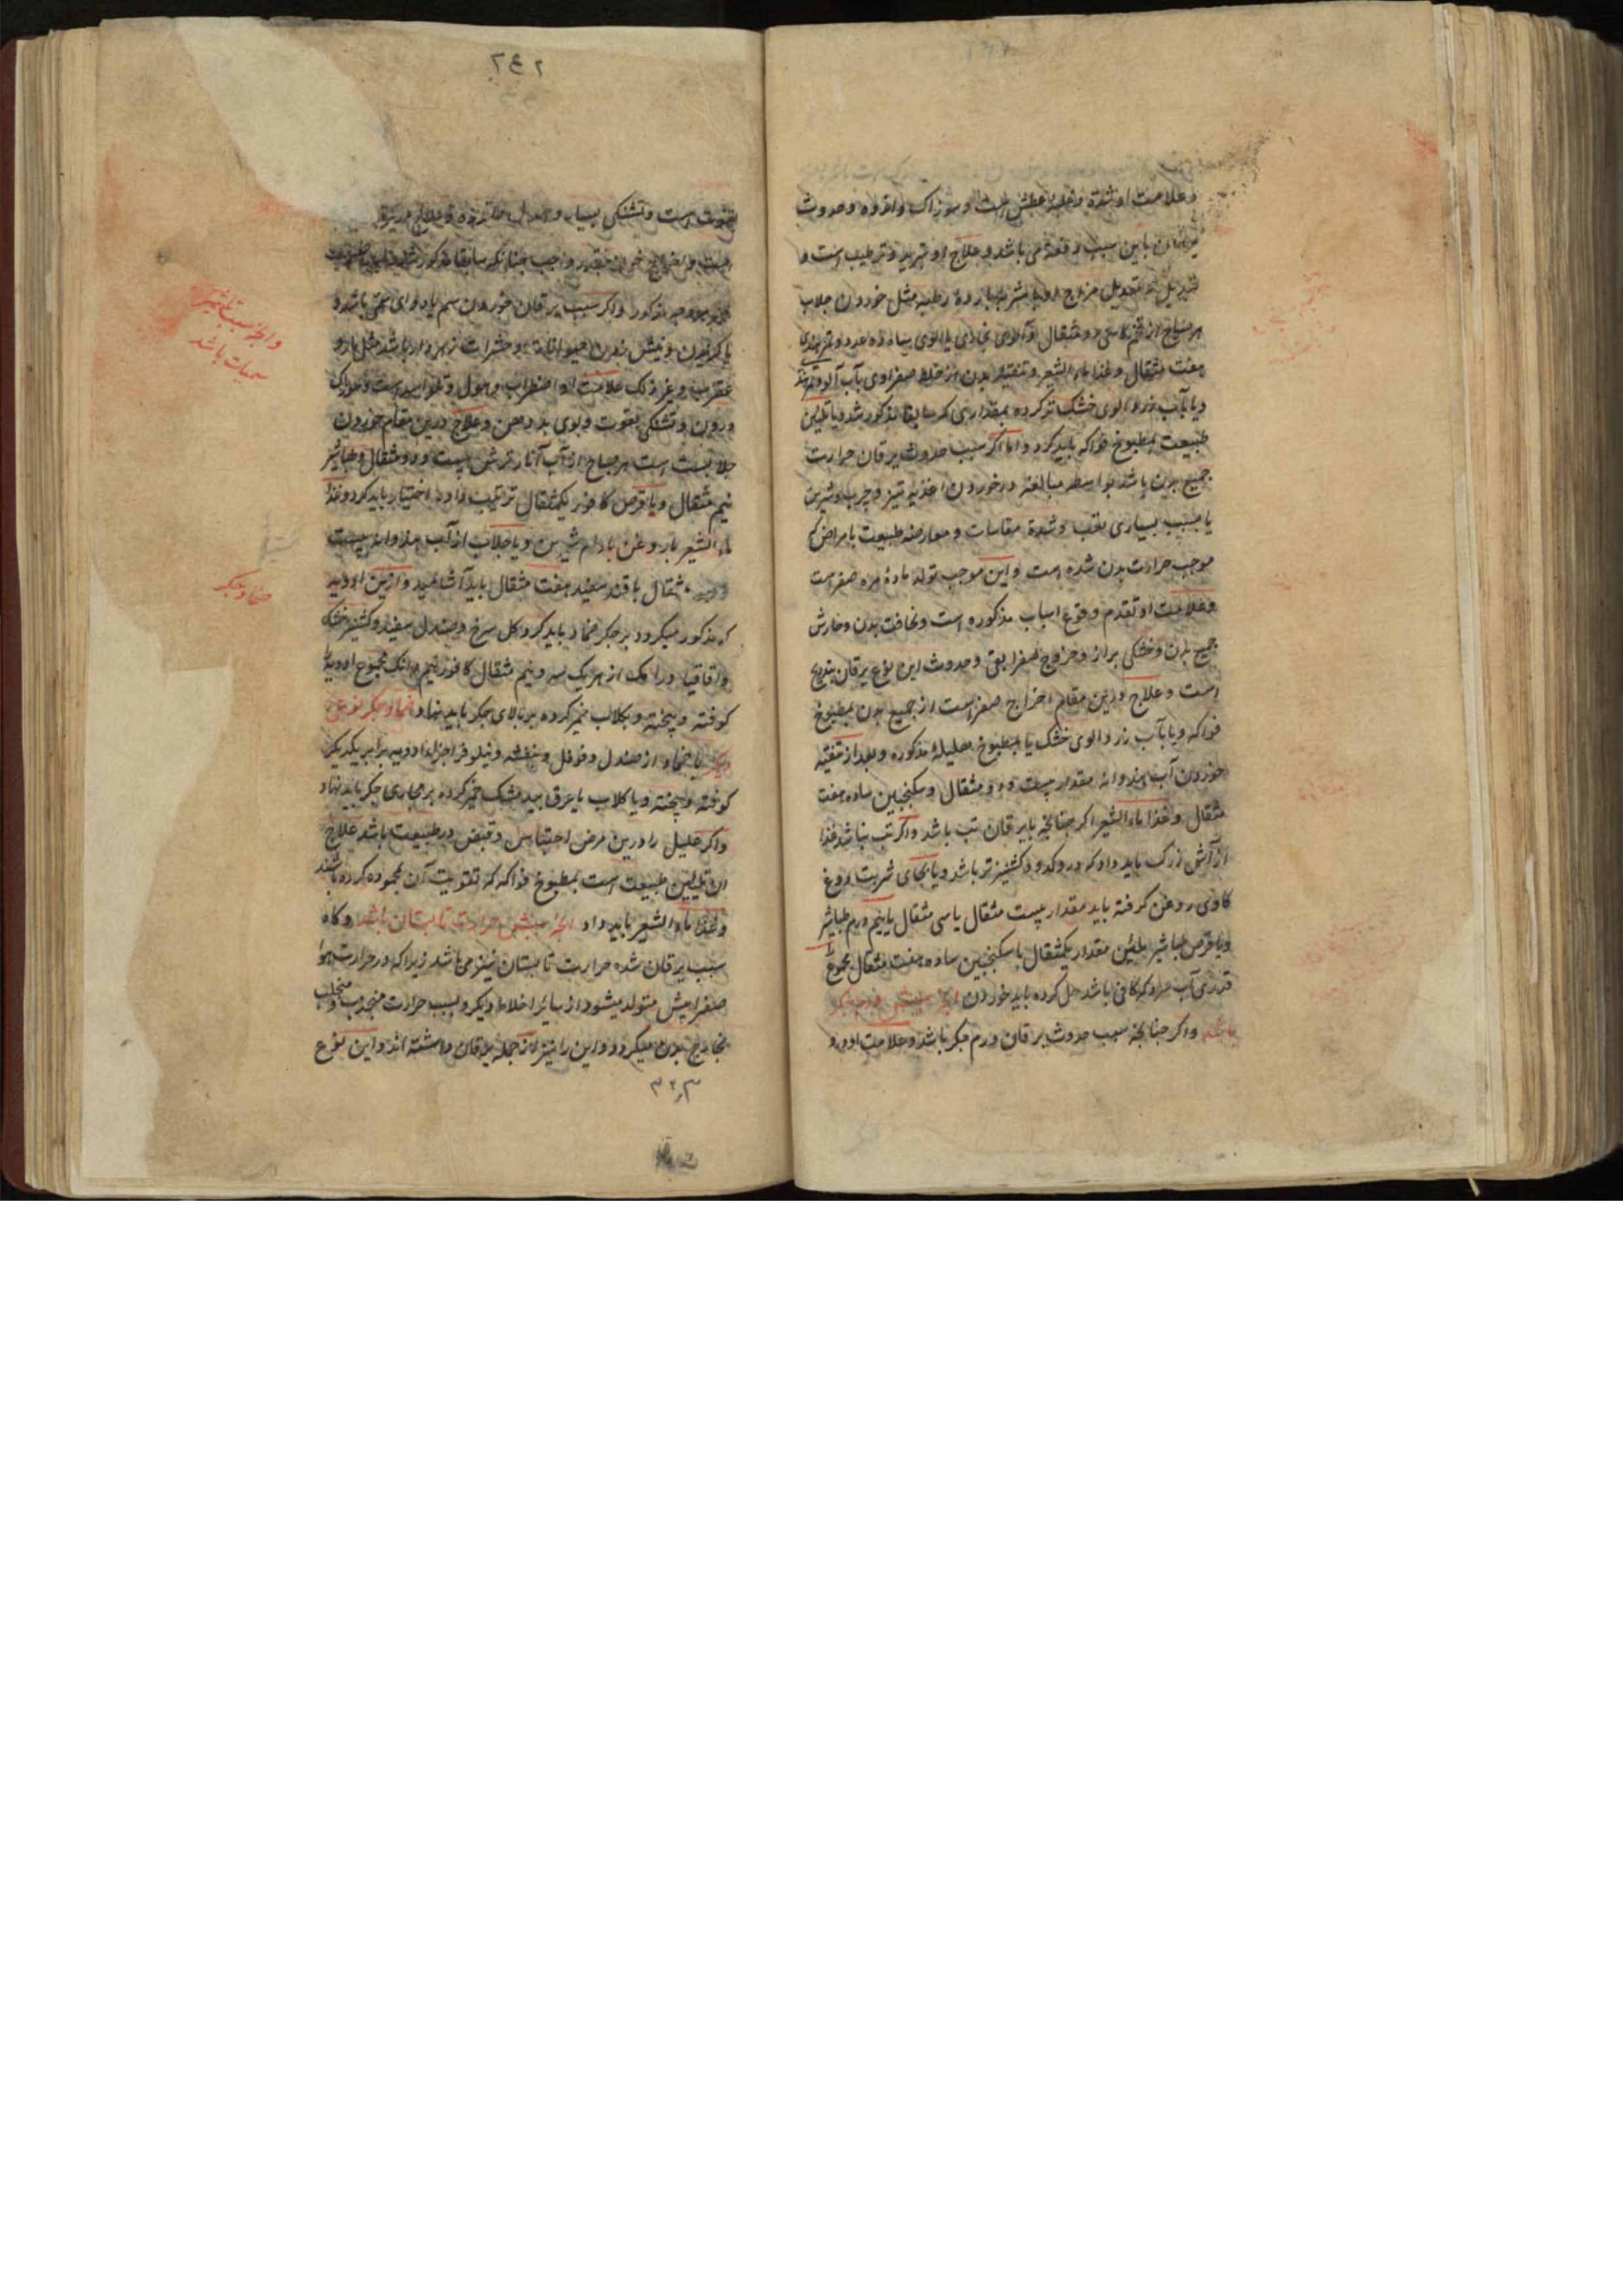 وعلامت او شدة وغلبه عطش است و سوزاک واندوه وحدوث
یرقان باین سبب دفعة می باشد وعلاج او تبرید وترطیب است و
تبدیل و تعدیل مزاج اوبا شربه بارده رطبه مثل خوردن جلاب
هر صباح از تخم کاسنی دو مثقال و آلوی سیاه ده عدد و تمر هندی
هفت مثقال وغذا ماء الشعیر و تنقیه بدن از خلط صفراوی بآب آلو و تمر هندی
ویا بآب زرد الوی خشک تر کرده بمقداری که سابقا مذکور شد ویا تلیین
طبیعت بمطبوخ فواکه باید کرد واما اکر سبب حدوث یرقان حرارت
جمیع بدن باشد بواسطه مبالغه در خوردن اغذیه تیز و چرب وشیرین
یا بسبب بسیاری تعب وشدة مقاسات ومعارضه طبیعت با مراض که
موجب حرارت بدن شده است واین موجب تولد مادهٔ مره صفراست
وعلامت او تقدم وقوع اسباب مذکوره است ونحافت بدن وخارش
جمیع بدن وخشکی براز وخروج صفرا بقی وحدوث این نوع یرقان بتدریج
است وعلاج درین مقام اخراج صفراست از جمیع بدن بمطبوخ
فواکه ویا بآب زرد الوی خشک یا بمطبوخ هلیلهٔ مذکوره وبعد از تنقیه
خوردن آب هندوانه مقدار بیست ودو مثقال وسکنجبین ساده هفت
مثقال وغذا ماء الشعیر اکر چنانچه با یرقان تب باشد واکر تب نباشد غذا
از آش زرک باید داد که درو کدو و کشنیز تر باشد ویا بجای شربت دوغ
کاوی روغن کرفته باید مقدار بیست مثقال یا سی مثقال با نیم درم طباشیر
ویا قرص طباشیر ملین مقدار یکمثقال با سکنجبین ساده هفت مثقال مجموع را
قدری آب سرد که کافی باشد حل کرده باید خوردن انچه سببش ورم جکر
باشد واکر چنانچه سبب حدوث یرقان ورم جکر باشد وعلامت او درد
۲۴۲
است وتشنکی بسیار
است واخراج خون بقدر واجب چنانکه سابقا مذکور شد
مذکور واکر سبب یرقان خوردن سم یا دوای سمی باشد و
یا کزیدن ونیش زدن حیوانات وحشرات زهردار باشد مثل مار و
عقرب وغیر ذلک علامت او اضطراب وهول
درون وتشنکی بقوت وبوی بد دهن وعلاج درین مقام خوردن
جلابست هر صباح از آب آنار ترش بیست ودو مثقال وطباشیر
نیم مثقال ویا قرص کافور یکمثقال ترتیب داده اختیار باید کرد وغذا
ماء الشعیر با روغن بادام شیرین ویا جلاب از آب هندوانه بیست
مثقال با قند سفید هفت مثقال باید آشامید وازین ادویه
که مذکور میکردد بر جکر ضماد باید کرد کل سرخ وصندل سفید وکشنیز خشک
واقاقیا ورامک از هر یک سه ونیم مثقال کافور نیم دانک مجموع ادویه را
کوفته وبیخته وبکلاب خمیر کرده بر بالای جکر باید نهاد ضماد جکر نوعی
دیکر یا ضماد از صندل وفوفل وبنفشه ونیلوفر اجزاء ادویه برابر یکدیکر
کوفته وبیخته ویا کلاب یا عرق بید مشک خمیر کرده بر محاری جکر باید نهاد
واکر علیل را درین مرض احتباس وقبض در طبیعت باشد علاج
ان تلیین طبیعت است بمطبوخ فواکه که تقویت آن بمحموده کرده باشند
وغذا ماء الشعیر باید داد انچه سببش حرارت تابستان باشد وکاه
سبب یرقان شده حرارت تابستان نیز می باشد زیرا که در حرارت هوا
صفرا بیش متولد میشود از سایر اخلاط دیکر وبسبب حرارت منجذب ومنجلب
بخارج بدن میکردد واین را نیز از جمله یرقان دانسته اند واین نوع
سمیات باشد
ضماد جکر